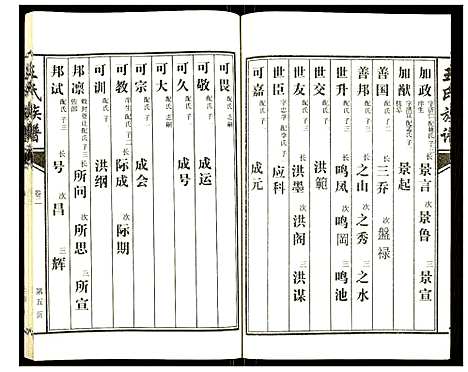 王氏族谱
加政 配氏 子三 长 景言 次 景鲁 三 景宣
加猷 景起
善国 配氏 子二 长 三乔 次 盤禄
善邦 配氏 子三 长 之山 次 之秀 三 之水
世升 配氏 子三 长 鸣凤 次 鸣冈 三 鸣池
世交 配氏 子 洪範
世友 配氏 子三 长 洪墨 次 洪阁 三 洪谋
世臣 子 应科
可嘉 配氏 子 成元
可畏 配氏 乏嗣
可敬 配氏 子 成运
可久 配氏 子 成号
可大 配氏 乏嗣
可宗 配氏 子 成会
可教 配氏 子二 长 际成 次 际期
可训 配氏 子 洪纲
邦凛 配氏 子三 长 所问 次 所思 三 所宣
邦试 配氏 子三 长 号 次 昌 三 辉
王氏族谱
卷二
第五页